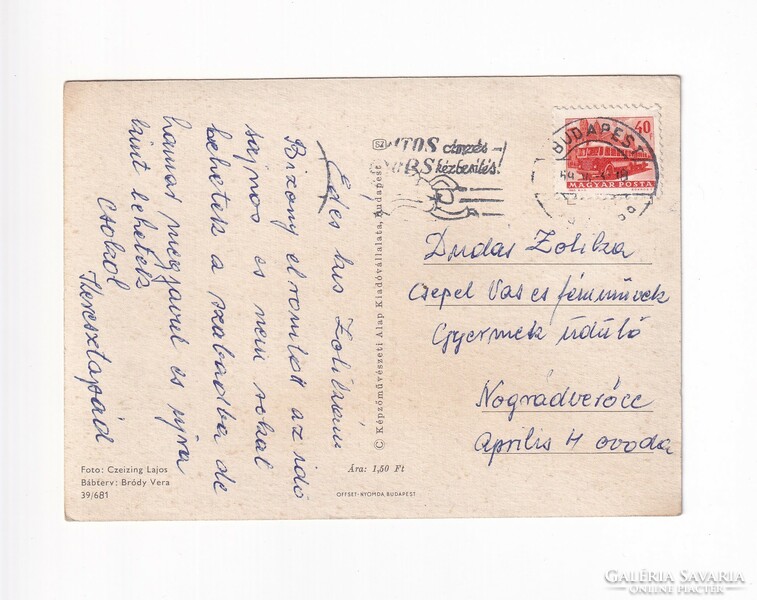 Édes kis Zolikám
Bizony elromlott az idő
sajnos es nem sokat
lehetek a szabadba de
hamar megjavul es ujra
kint lehetek
Csokol
Keresztapád
Foto: Czeizing Lajos
Bábterv: Bródy Vera
39/681
© Képzőművészeti Alap Kiadóvállalata, Budapest
Ára: 1,50 Ft
OFFSET-NYOMDA, BUDAPEST
címzés –
kézbesítés!
BUDAPEST
40
MAGYAR POSTA
Dudás Zolika
Csepel Vas es fémművek
Gyermek üdülő
Nográdverőce
Április 4 ovoda
GALÉRIA SAVARIA
ONLINE PIACTÉR